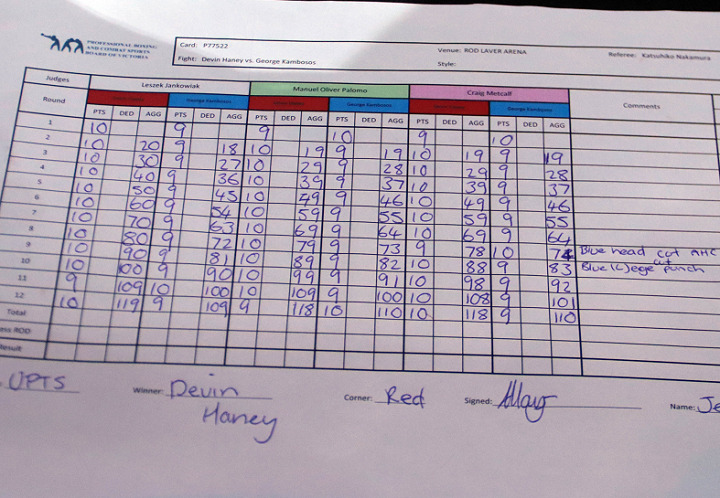 PROFESSIONAL BOXING
AND COMBAT SPORTS
BOARD OF VICTORIA
Card: P77522
Fight: Devin Haney vs. George Kambosos
Venue: ROD LAVER ARENA
Style:
Referee: Katsuhiko Nakamura
Judges Leszek Jankowiak Manuel Oliver Palomo Craig Metcalf Comments
Round Devin Haney George Kambosos Devin Haney George Kambosos Devin Haney George Kambosos
PTS DED AGG PTS DED AGG PTS DED AGG PTS DED AGG PTS DED AGG PTS DED AGG
1 10 9 9 10 9 10
2 10 20 9 18 10 19 9 19 10 19 9 19
3 10 30 9 27 10 29 9 28 10 29 9 28
4 10 40 9 36 10 39 9 37 10 39 9 37
5 10 50 9 45 10 49 9 46 10 49 9 46
6 10 60 9 54 10 59 9 55 10 59 9 55
7 10 70 9 63 10 69 9 64 10 69 9 64
8 10 80 9 72 10 79 9 73 9 78 10 74 Blue head cut AHC
9 10 90 9 81 10 89 9 82 10 88 9 83 Blue (L) eye cut punch
10 10 100 9 90 10 99 9 91 10 98 9 92
11 9 109 10 100 10 109 9 100 10 108 9 101
12 10 119 9 109 9 118 10 110 10 118 9 110
Total
ess ROD
Result
UPTS Winner: Devin Haney Corner: Red Signed: Name: Je